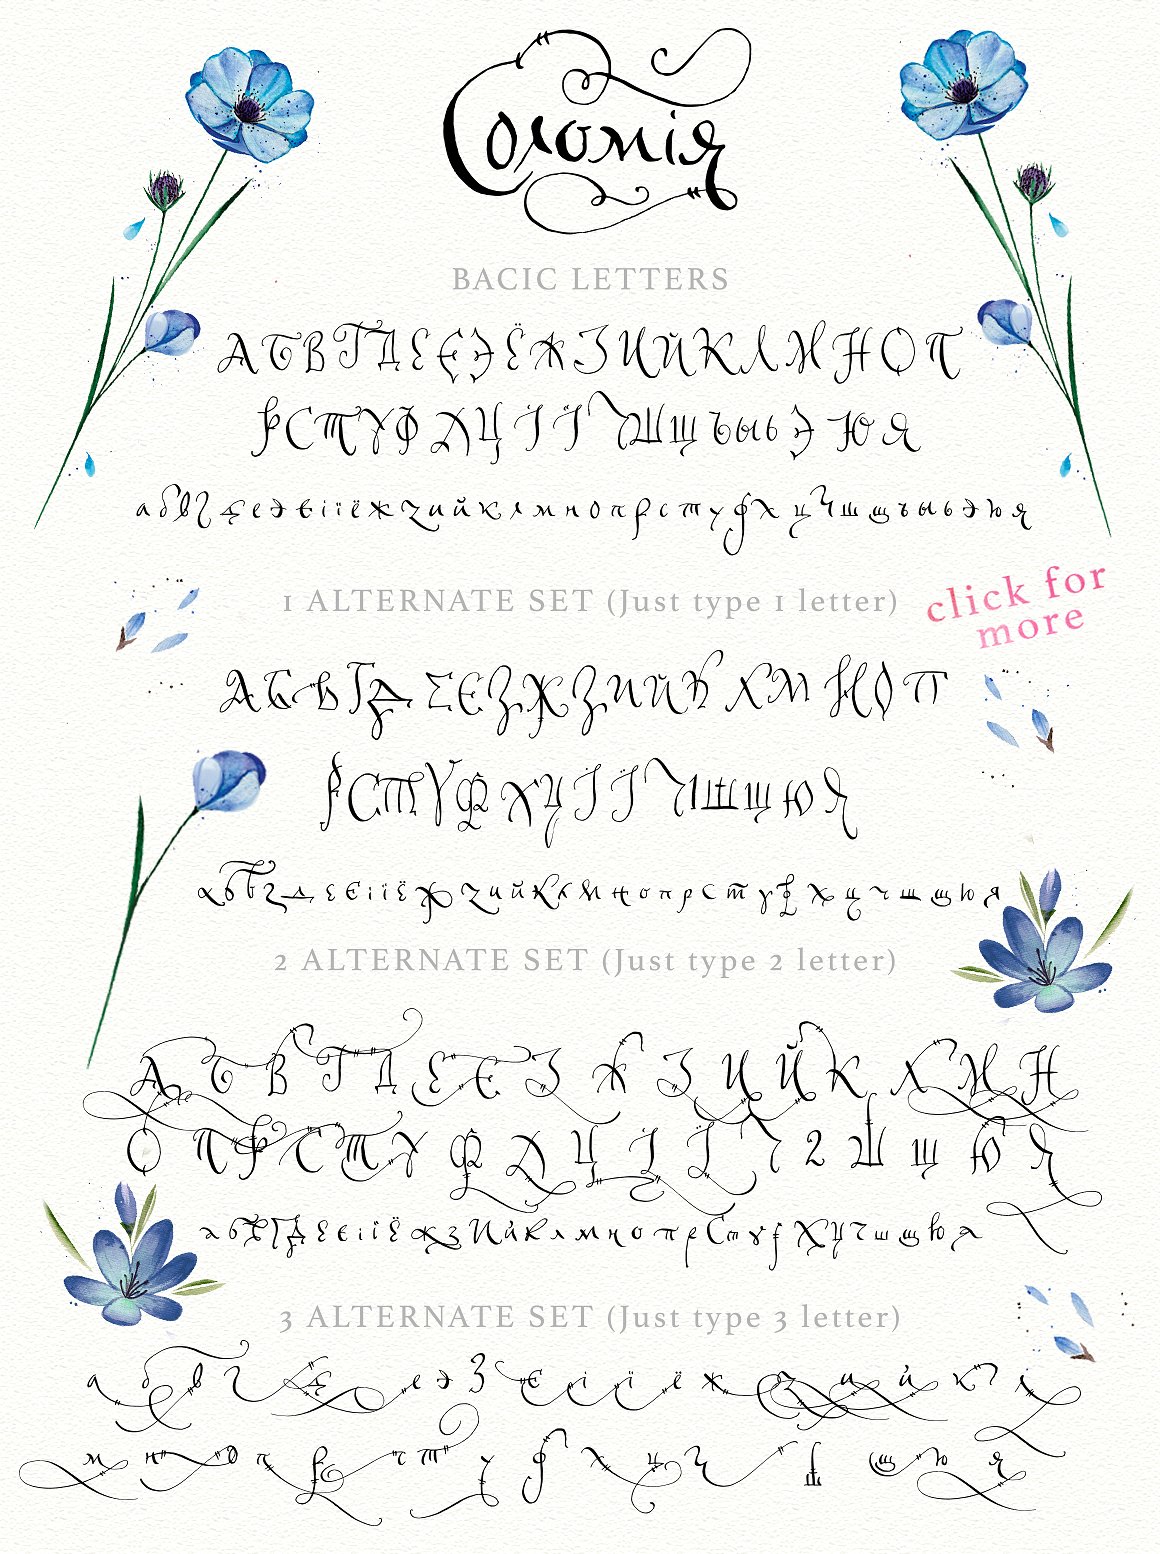 Соломія
BACIC LETTERS
АБВГДЕЄЭЁЖЗИЙКЛМНОП
РСТУФХЦІЇЧШЩЪЫЬЭЮЯ
абвгдеэєіїёжзийклмнопрстуфхцчшщъыьэюя
1 ALTERNATE SET (Just type 1 letter)
click for
more
АБВГДЕЄЗЖЗИЙКЛМНОП
РСТУФХЦІЇЧШЩЮЯ
абвгдеєіїёжзийклмнопрстуфхцчшщюя
2 ALTERNATE SET (Just type 2 letter)
АБВГДЕЄЗЖЗИЙКЛМН
ОПРСТУФХЦІЇЧ2ШЩЮЯ
абвгдеєіїёжзийклмнопрстуфхцчшщюя
3 ALTERNATE SET (Just type 3 letter)
абвгдеэЗєіїёжзийк?л
мнопрстуфхцчшщюя